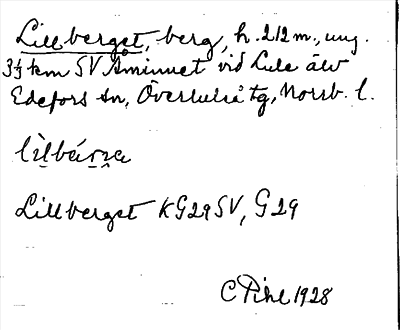 Lillberget, berg, h. 212 m., ung.
3½ km SV Åminnet vid Lule älv
Edefors sn, Överluleå tg, Norrb. l.
Lillberget KG29SV, G29
C Pihl 1928